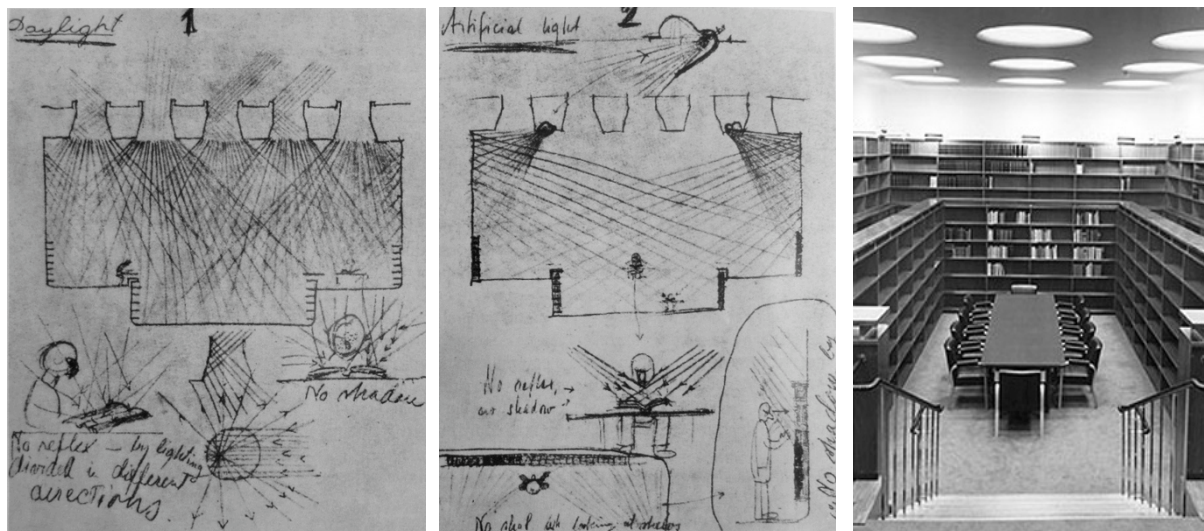 Daylight
1
No shadow
No reflex – by lighting
divided in different
directions
Artificial light
2
No reflex,
no shadow
No shadow by
No shad